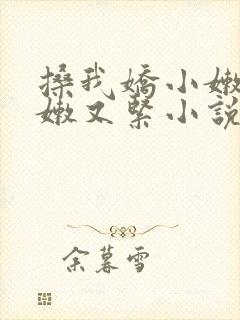 搡我嬌小嫩
嫩又緊小說
余暮雪